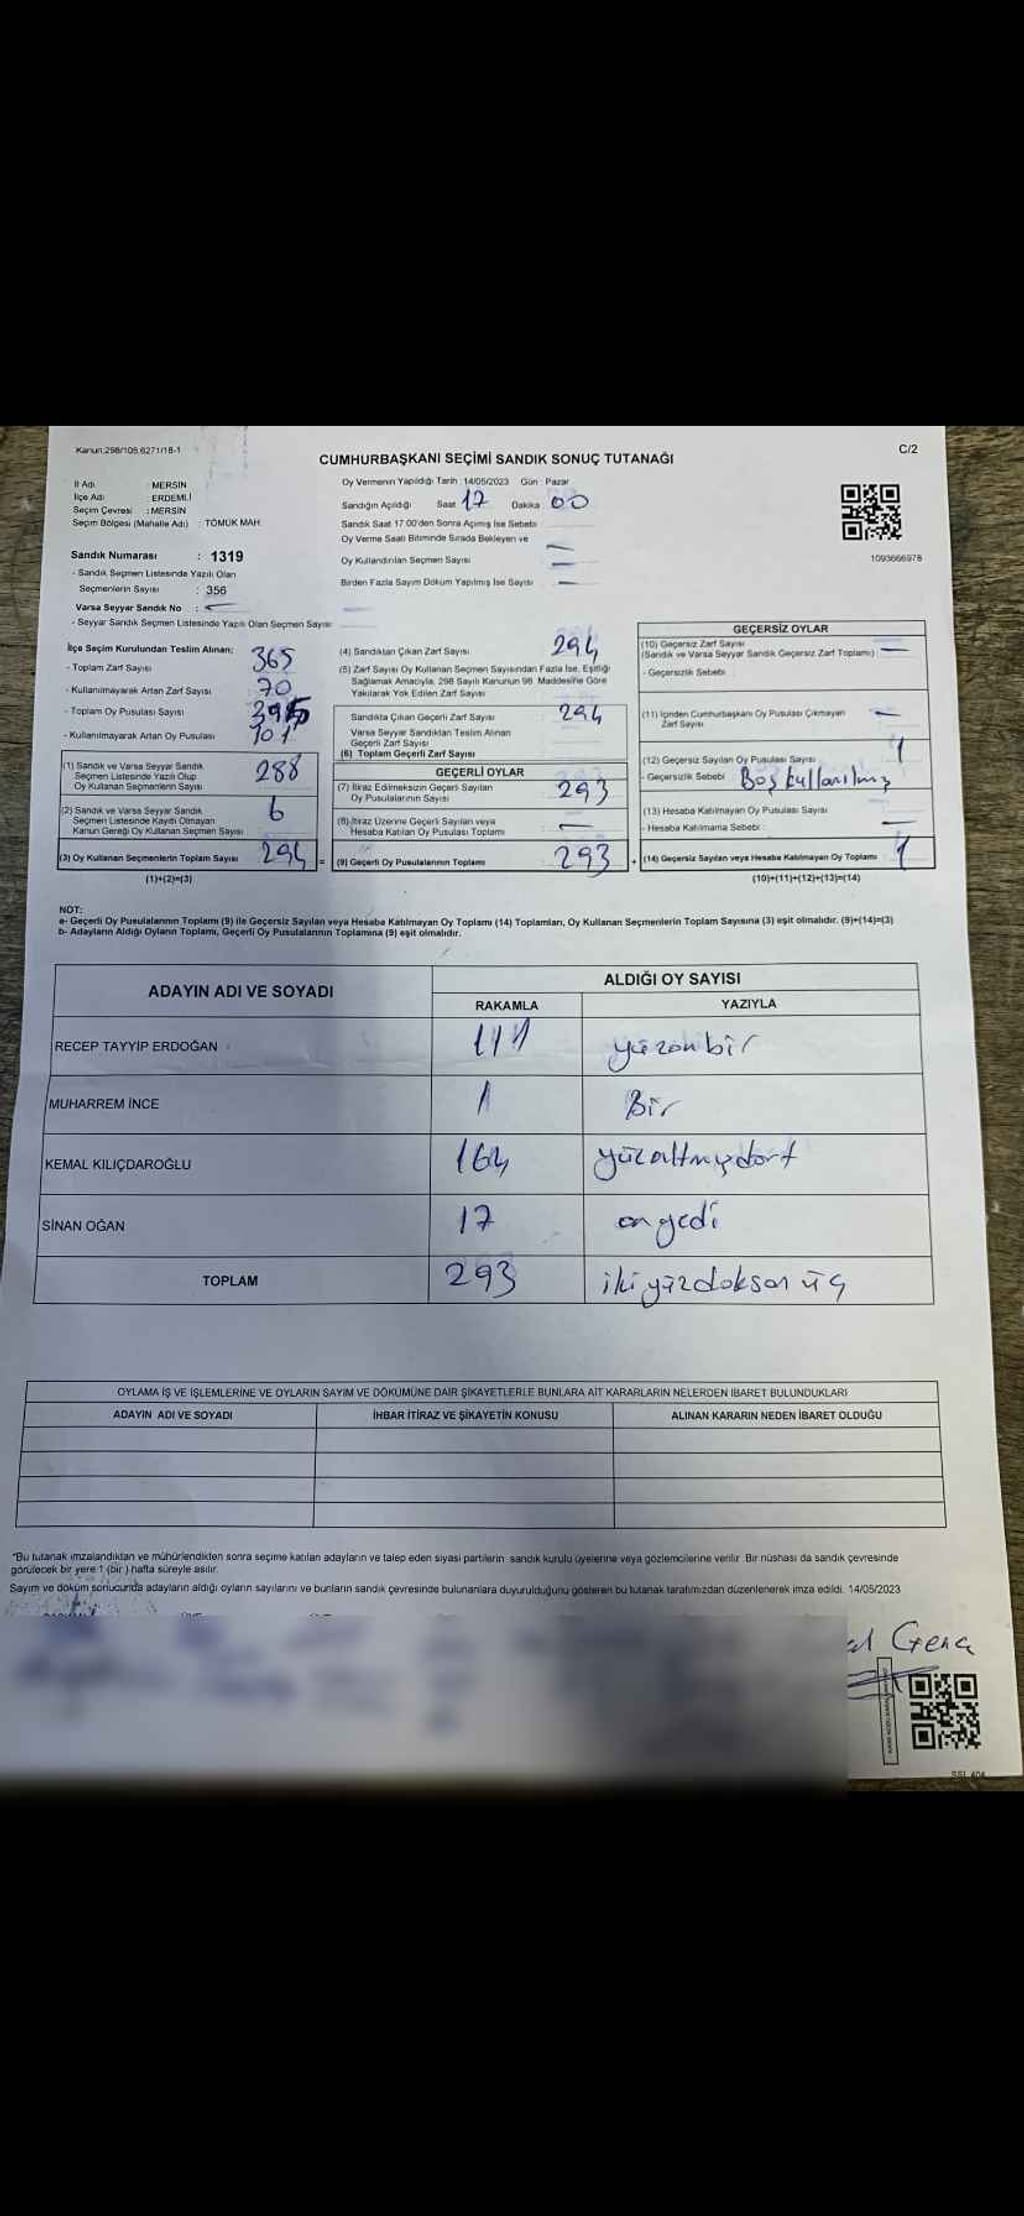 Kanun:298/105,6271/18-1
C/2
CUMHURBAŞKANI SEÇİMİ SANDIK SONUÇ TUTANAĞI
İl Adı : MERSİN
İlçe Adı : ERDEMLİ
Seçim Çevresi : MERSİN
Seçim Bölgesi (Mahalle Adı) : TÖMÜK MAH.
Sandık Numarası : 1319
- Sandık Seçmen Listesinde Yazılı Olan
Seçmenlerin Sayısı : 356
Varsa Seyyar Sandık No : -
- Seyyar Sandık Seçmen Listesinde Yazılı Olan Seçmen Sayısı
Oy Vermenin Yapıldığı Tarih : 14/05/2023 Gün : Pazar
Sandığın Açıldığı Saat 17 Dakika 00
Sandık Saat 17:00'den Sonra Açılmış İse Sebebi
Oy Verme Saati Bitiminde Sırada Bekleyen ve
Oy Kullandırılan Seçmen Sayısı —
Birden Fazla Sayım Döküm Yapılmış İse Sayısı —
1093666978
İlçe Seçim Kurulundan Teslim Alınan:
- Toplam Zarf Sayısı 365
- Kullanılmayarak Artan Zarf Sayısı 70
- Toplam Oy Pusulası Sayısı 395
- Kullanılmayarak Artan Oy Pusulası 101
(1) Sandık ve Varsa Seyyar Sandık
Seçmen Listesinde Yazılı Olup
Oy Kullanan Seçmenlerin Sayısı 288
(2) Sandık ve Varsa Seyyar Sandık
Seçmen Listesinde Kaydı Olmayan
Kanun Gereği Oy Kullanan Seçmen Sayısı 6
(3) Oy Kullanan Seçmenlerin Toplam Sayısı 294 =
(1)+(2)=(3)
(4) Sandıktan Çıkan Zarf Sayısı 294
(5) Zarf Sayısı Oy Kullanan Seçmen Sayısından Fazla İse, Eşitliği
Sağlamak Amacıyla, 298 Sayılı Kanunun 98. Maddesine Göre
Yakılarak Yok Edilen Zarf Sayısı
Sandıkta Çıkan Geçerli Zarf Sayısı 294
Varsa Seyyar Sandıktan Teslim Alınan
Geçerli Zarf Sayısı
(6) Toplam Geçerli Zarf Sayısı
GEÇERLİ OYLAR
(7) İtiraz Edilmeksizin Geçerli Sayılan
Oy Pusulalarının Sayısı 293
(8) İtiraz Üzerine Geçerli Sayılan veya
Hesaba Katılan Oy Pusulası Toplamı —
(9) Geçerli Oy Pusulalarının Toplamı 293 +
GEÇERSİZ OYLAR
(10) Geçersiz Zarf Sayısı
(Sandık ve Varsa Seyyar Sandık Geçersiz Zarf Toplamı) —
- Geçersizlik Sebebi
(11) İçinden Cumhurbaşkanı Oy Pusulası Çıkmayan
Zarf Sayısı —
(12) Geçersiz Sayılan Oy Pusulası Sayısı 1
- Geçersizlik Sebebi Boş kullanılmış
(13) Hesaba Katılmayan Oy Pusulası Sayısı —
- Hesaba Katılmama Sebebi
(14) Geçersiz Sayılan veya Hesaba Katılmayan Oy Toplamı 1
(10)+(11)+(12)+(13)=(14)
NOT:
a- Geçerli Oy Pusulalarının Toplamı (9) ile Geçersiz Sayılan veya Hesaba Katılmayan Oy Toplamı (14) Toplamları, Oy Kullanan Seçmenlerin Toplam Sayısına (3) eşit olmalıdır. (9)+(14)=(3)
b- Adayların Aldığı Oyların Toplamı, Geçerli Oy Pusulalarının Toplamına (9) eşit olmalıdır.
ADAYIN ADI VE SOYADI
ALDIĞI OY SAYISI
RAKAMLA YAZIYLA
RECEP TAYYİP ERDOĞAN 111 yüzonbir
MUHARREM İNCE 1 Bir
KEMAL KILIÇDAROĞLU 164 yüzaltmışdört
SİNAN OĞAN 17 onyedi
TOPLAM 293 ikiyüzdoksanüç
OYLAMA İŞ VE İŞLEMLERİNE VE OYLARIN SAYIM VE DÖKÜMÜNE DAİR ŞİKAYETLERLE BUNLARA AİT KARARLARIN NELERDEN İBARET BULUNDUKLARI
ADAYIN ADI VE SOYADI İHBAR İTİRAZ VE ŞİKAYETİN KONUSU ALINAN KARARIN NEDEN İBARET OLDUĞU
*Bu tutanak imzalandıktan ve mühürlendikten sonra seçime katılan adayların ve talep eden siyasi partilerin sandık kurulu üyelerine veya gözlemcilerine verilir. Bir nüshası da sandık çevresinde
görülecek bir yere 1 (bir) hafta süreyle asılır.
Sayım ve döküm sonucunda adayların aldığı oyların sayılarını ve bunların sandık çevresinde bulunanlara duyurulduğunu gösteren bu tutanak tarafımızdan düzenlenerek imza edildi. 14/05/2023
Genç